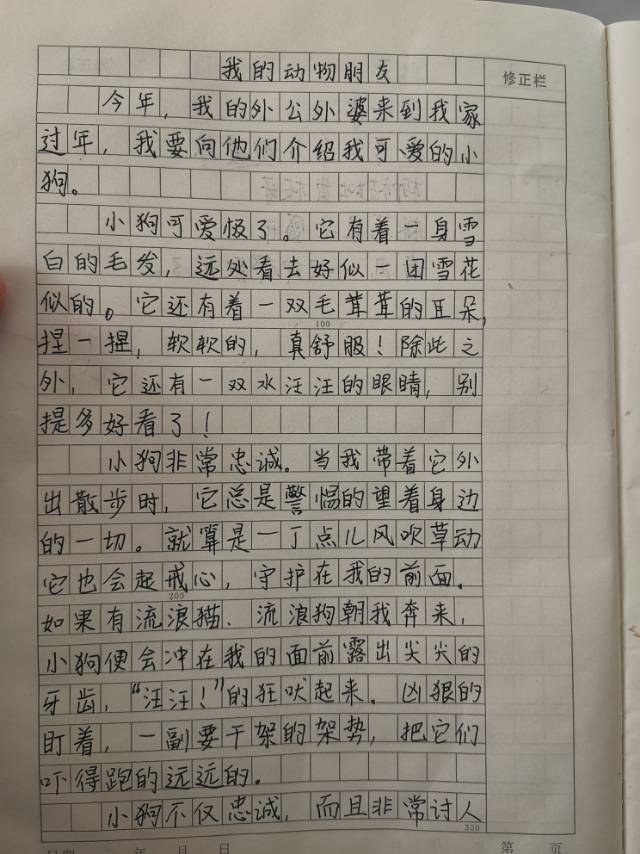 我的动物朋友
修正栏
今年，我的外公外婆来到我家
过年，我要向他们介绍我可爱的小
狗。
小狗可爱极了。它有着一身雪
白的毛发，远处看去好似一团雪花
似的。它还有着一双毛茸茸的耳朵，
100
捏一捏，软软的，真舒服！除此之
外，它还有一双水汪汪的眼睛，别
提多好看了！
小狗非常忠诚。当我带着它外
出散步时，它总是警惕的望着身边
的一切。就算是一丁点儿风吹草动
它也会起戒心，守护在我的前面。
200
如果有流浪猫、流浪狗朝我奔来，
小狗便会冲在我的面前露出尖尖的
牙齿，“汪汪！”的狂吠起来。凶狠的
盯着，一副要干架的架势，把它们
吓得跑的远远的。
小狗不仅忠诚，而且非常讨人
300
年 月 日
第 页